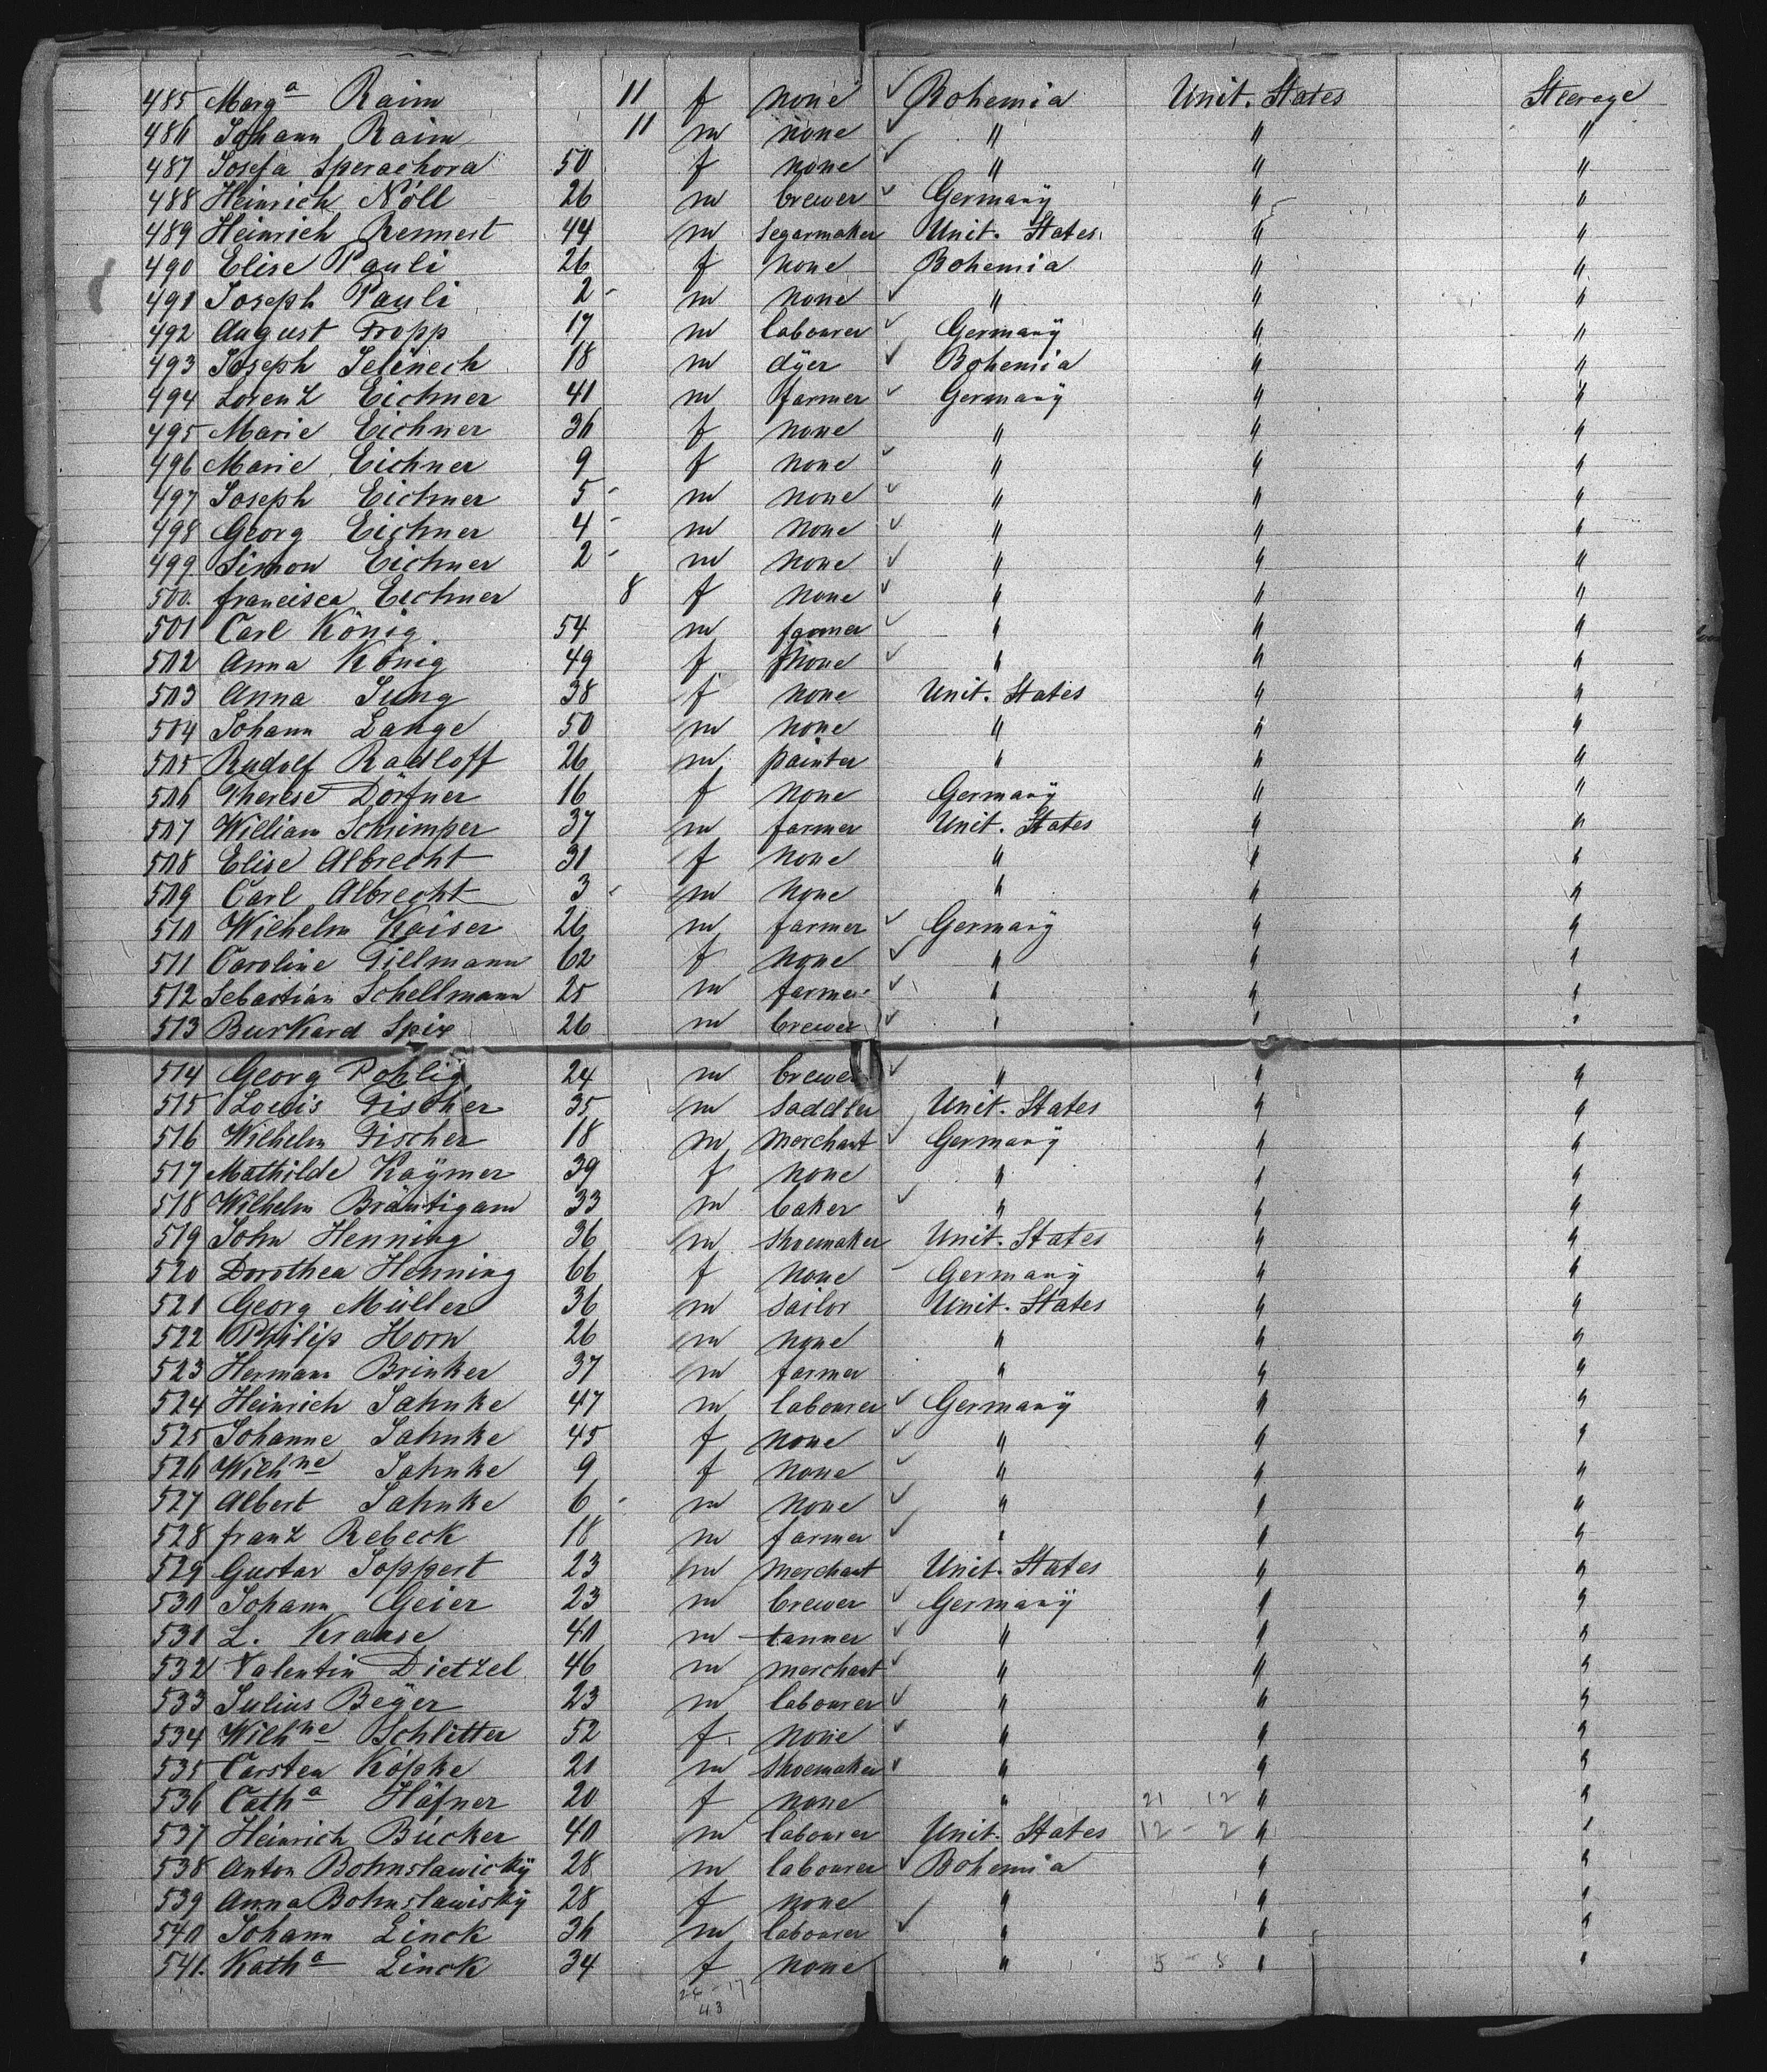 485 Marg<sup>a</sup> Raim 11 f none ✓ Bohemia Unit. States Steerage
486 Johann Raim 11 m none ✓ " " "
487 Josefa Sperachova 50 f none ✓ " " "
488 Heinrich Nöll 26 m brewer ✓ Germany " "
489 Heinrich Rennert 44 m Segarmaker Unit. States " "
490 Elise Pauli 26 f none Bohemia " "
491 Joseph Pauli 2 - m none ✓ " " "
492 August Tropp 17 m labourer ✓ Germany " "
493 Joseph Jelineck 18 m dyer ✓ Bohemia " "
494 Lorenz Eichner 41 m farmer ✓ Germany " "
495 Marie Eichner 36 f none " " "
496 Marie Eichner 9 f none ✓ " " "
497 Joseph Eichner 5 - m none ✓ " " "
498 Georg Eichner 4 - m none ✓ " " "
499 Simon Eichner 2 - m none ✓ " " "
500. francisca Eichner 8 f none ✓ " " "
501 Carl König 54 m farmer ✓ " " "
502 Anna König 49 f none ✓ " " "
503 Anna Jung 38 f none Unit. States " "
504 Johann Lange 50 m none " " "
505 Rudolf Radloff 26 m painter " " "
506 Therese Dörfner 16 f none Germany " "
507 William Schimper 37 m farmer Unit. States " "
508 Elise Albrecht 31 f none " " "
509 Carl Albrecht 3 - m none " " "
510 Wilhelm Kaiser 26 m farmer ✓ Germany " "
511 Caroline Tillmann 62 f none ✓ " " "
512 Sebastian Schellmann 25 m farmer ✓ " " "
513 Burkard Spix 26 m brewer ✓ " " "
514 Georg Pohlig 24 m brewer ✓ " " "
515 Louis Fischer 35 m saddler Unit. States " "
516 Wilhelm Fischer 18 m merchant ✓ Germany " "
517 Mathilde Kaymer 39 f none " " "
518 Wilhelm Bräutigam 33 m baker ✓ " " "
519 John Henning 36 m shoemaker Unit. States " "
520 Dorothea Henning 66 f none - Germany " "
521 Georg Müller 36 m sailor Unit. States " "
522 Philip Horn 26 m none " " "
523 Hermann Brinker 37 m farmer " " "
524 Heinrich Jahnke 47 m labourer ✓ Germany " "
525 Johanne Jahnke 45 f none ✓ " " "
526 Wilh<sup>ne</sup> Jahnke 9 f none ✓ " " "
527 Albert Jahnke 6 - m none ✓ " " "
528 franz Rebeck 18 m farmer ✓ " " "
529 Gustav Joppert 23 m merchant Unit. States " "
530 Johann Geier 23 m brewer ✓ Germany " "
531 L. Krause 40 m tanner ✓ " " "
532 Valentin Dietzel 46 m merchant ✓ " " "
533 Julius Beyer 23 m labourer ✓ " " "
534 Wilh<sup>ne</sup> Schlitter 52 f. none ✓ " " "
535 Carsten Köpke 21 m shoemaker ✓ " " "
536 Cath<sup>a</sup> Häfner 20 f none " 21 12 " "
537 Heinrich Bücker 40 m labourer Unit. States 12 - 2 " "
538 Anton Bohnslawicky 28 m labourer ✓ Bohemia " "
539 Anna Bohnslawisky 28 f none " " "
540 Johann Linck 36 m labourer ✓ " " "
541. Kath<sup>a</sup> Linck 34 f none " 5 - 8 " "
26 - 17
43